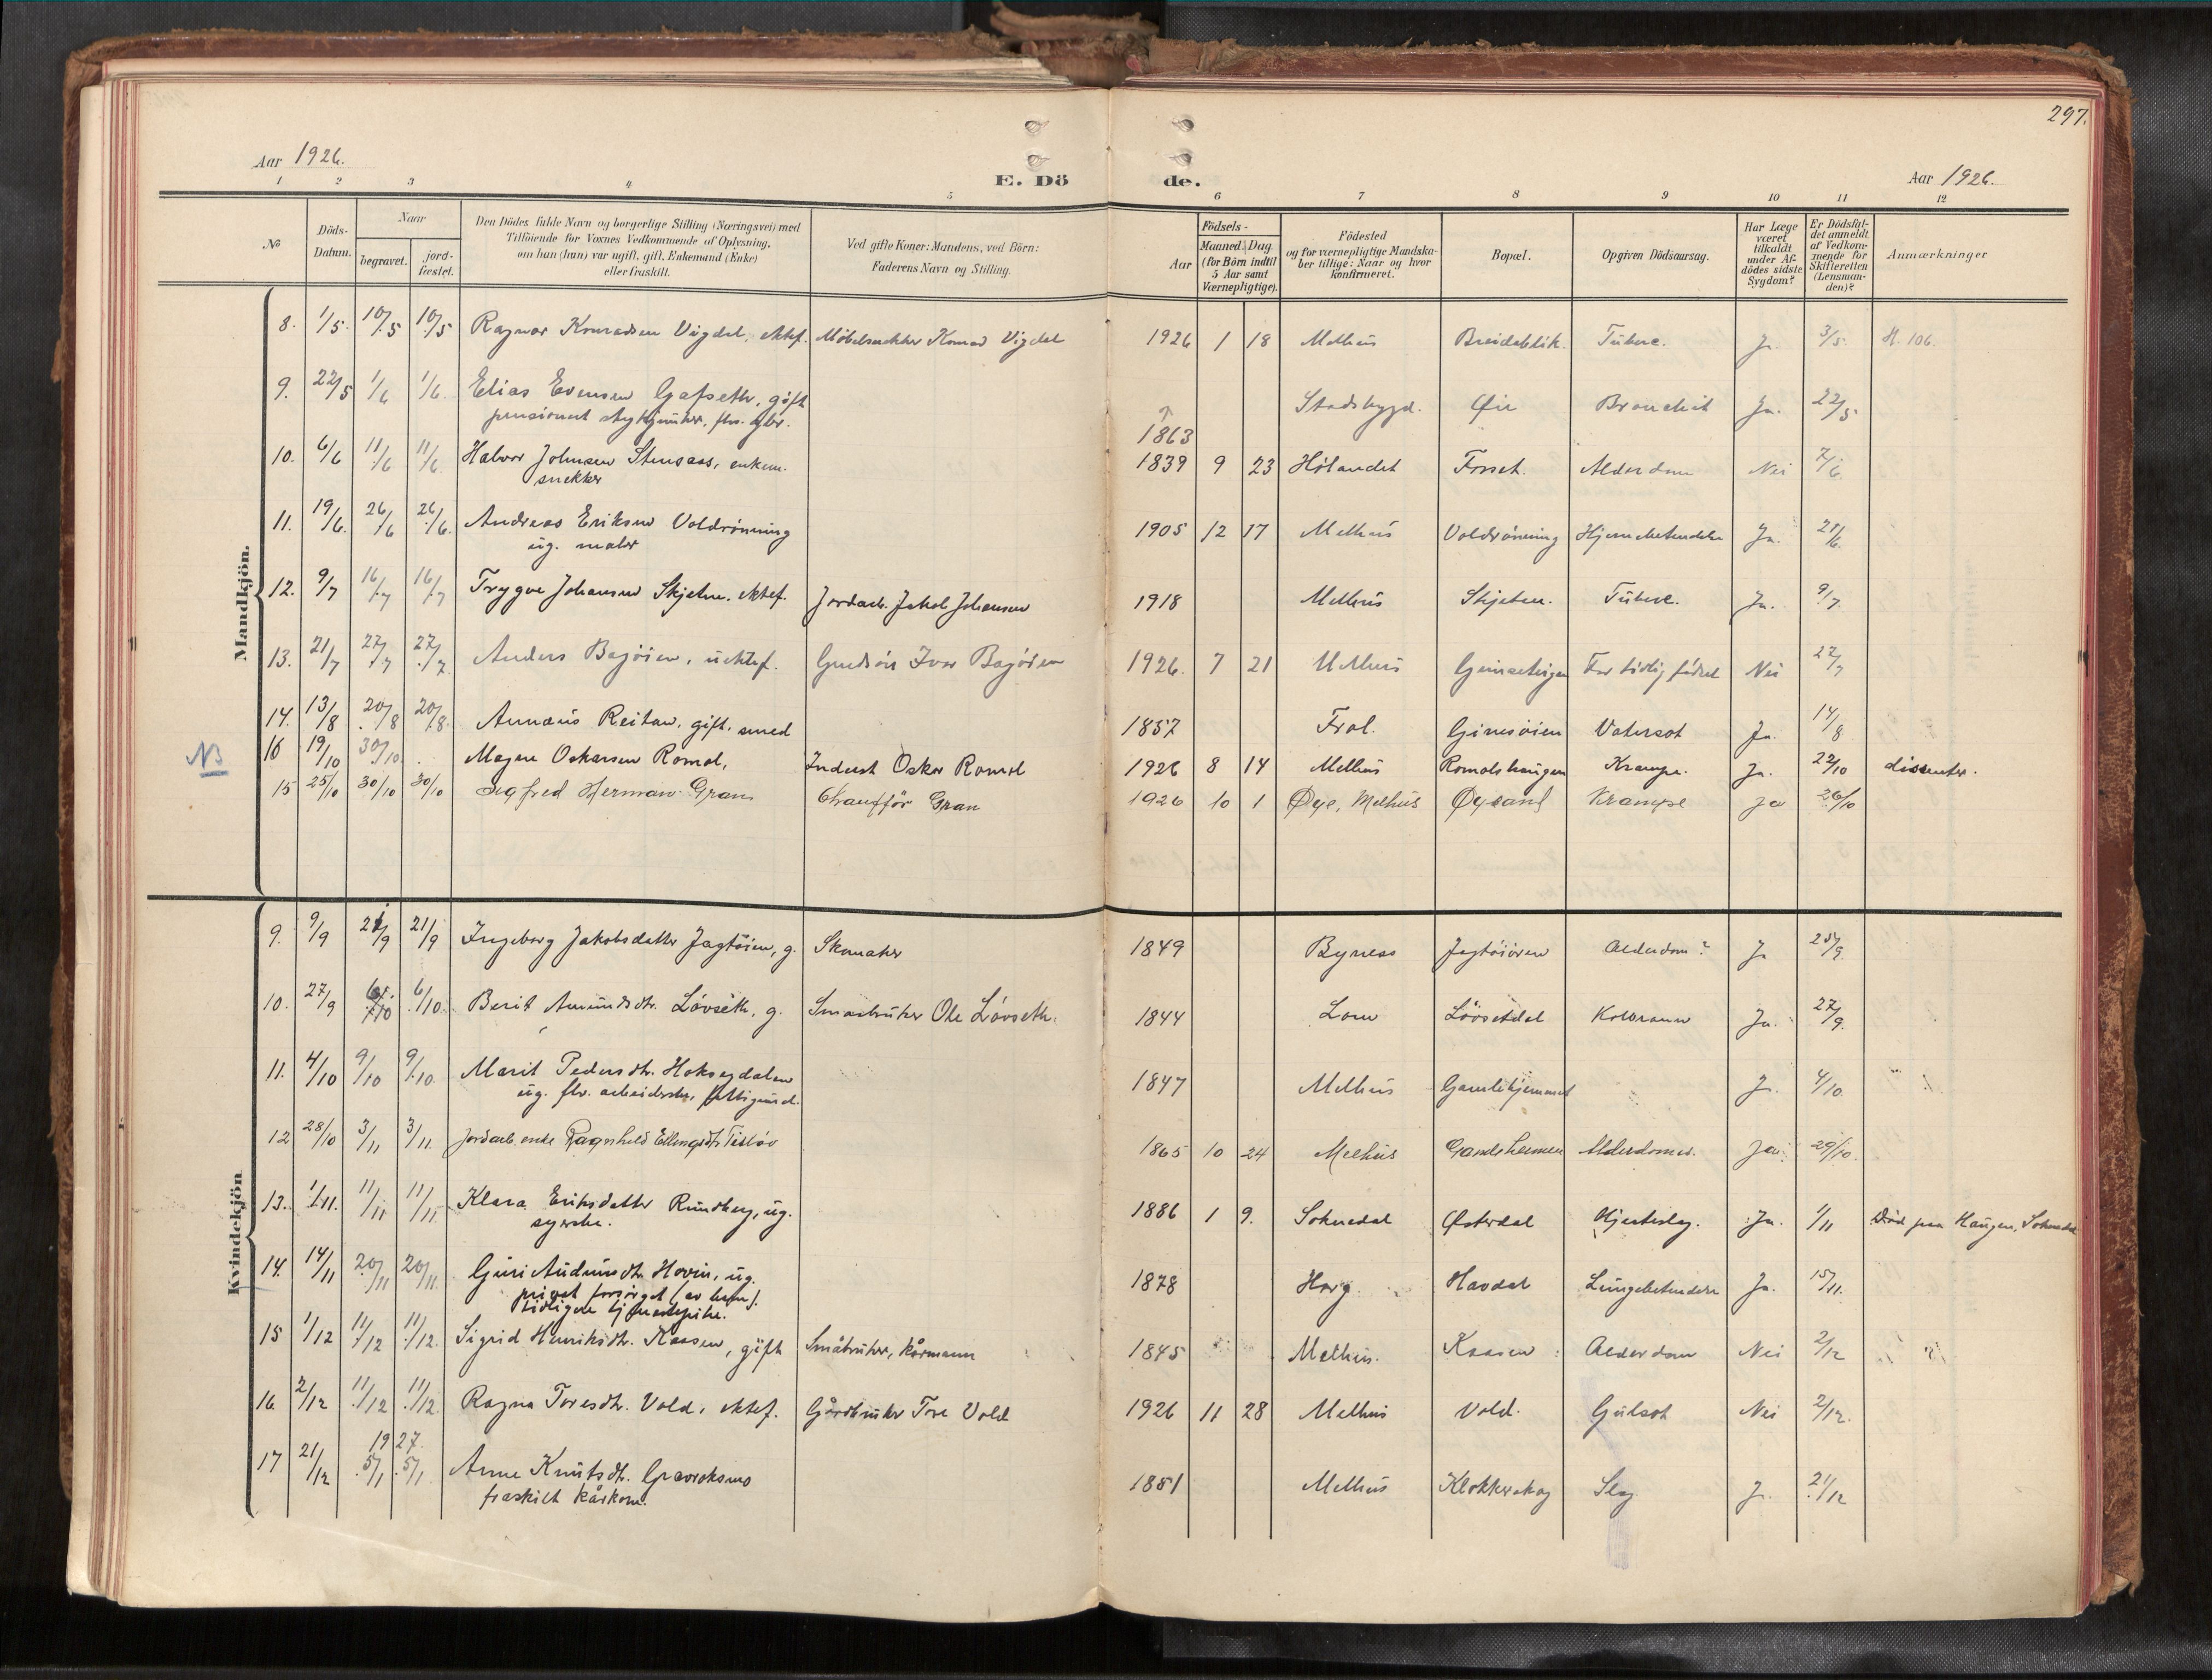 297.
Aar 1926.
E. Dö de.
Aar 1926.
1 2 3 4 5 6 7 8 9 10 11 12
№
Döds-
Datum.
Naar
begravet.
jord-
fæstet.
Den Dödes fulde Navn og borgerlige Stilling (Næringsvei) med
Tilföiende for Voxnes Vedkommende af Oplysning,
om han (hun) var ugift, gift, Enkemand (Enke)
eller fraskilt.
Ved gifte Koner: Mandens, ved Börn:
Faderens Navn og Stilling.
Födsels-
Aar
Maaned. Dag.
(for Börn indtil
5 Aar samt
Værnepligtige).
Födested
og for værnepligtige Mandska-
ber tillige: Naar og hvor
konfirmeret.
Bopæl.
Opgiven Dödsaarsag.
Har Læge
været
tilkaldt
under Af-
dödes sidste
Sygdom?
Er Dödsfal-
det anmeldt
af Vedkom-
mende for
Skifteretten
(Lensman-
den)?
Anmærkninger
Mandkjön.
8. 1/5. 10/5 10/5 Ragnar Konradsen Vigdal, ektef. Möbelsnekker Konrad Vigdal 1926 1 18 Melhus Breidablik. Tuberc. Ja. 3/5. H. 106.
9. 22/5 1/6 1/6. Elias Evensen Gafseth, gift
Stadsbygd. Øie Bronchit Ja. 22/5
1863
10. 6/6 11/6 11/6. Halvor Johnsen Stensaas, enkem.
snekker
1839 9 23 Hölandet Forset. Alderdom Nei 7/6.
11. 19/6. 26/6 26/6. Andreas Eriksen Voldrönning
ug. maler
1905 12 17 Melhus Voldrönning Hjernebetendelse Ja. 21/6.
12. 9/7 16/7 16/7 Trygve Johansen Skjetne. ektef. Jordarb. Jakob Johansen 1918 Melhus Skjetne. Tuberc. Ja. 9/7.
13. 21/7 27/7 27/7 Anders Bagöien, uektef. Gmdsön Ivar Bagöien 1926. 7 21 Melhus For tidlig födsel Nei 27/7
14. 13/8 20/8 20/8. Annæus Reitan, gift. smed 1857 Frol. Gimsöien Vatersot Ja. 14/8
NB
16 19/10 30/10 Magne Oskarsen Romol, Inderst Oskar Romol 1926 8 14 Melhus Romolshaugen Krampe. Ja. 22/10 dissenter.
15 25/10 30/10 30/10 Sigfred Herman Gran Chaufför Gran 1926 10 1 Øye, Melhus Øysand Krampe ja 26/10
Kvindekjön
9. 9/9 21/9 21/9 Ingeborg Jakobsdatter Jagtöien, g. Skomaker 1849 Byness Jagtöiören Alderdom? Ja 25/9.
10. 27/9 6/10 6/10. Berit Amundsdtr. Lövseth, g. Smaabruker Ole Lövseth. 1844 Lom Lövsetdal Ja. 27/9.
11. 4/10 9/10 9/10. Marit Pedersdtr. Hokseydalen
ug. flv. arbeiderske, fattigund.
1847 Melhus Gamlehjemmet Ja. 4/10.
12 28/10 3/11 3/11. Jordarb. enke Ragnhild Ellingsdtr Teslöv 1865 10 24 Melhus Alderdomss. Ja. 29/10.
13. 1/11. 11/11 11/11. Klara Eriksdatter Rundhaug, ug.
syerske.
1886 1 9. Soknedal Østerdal Hjerteslag. Ja. 1/11 Död paa Haugen, Soknedal
14. 14/11 20/11 20/11. Guri Audunsdtr. Hovin, ug.
privat forsörget (av
tidligere tjenestepike.
1878 Horg. Havdal Lungebetendelse Ja. 15/11.
15 1/12 11/12 11/12. Sigrid Henriksdtr. Kaasen, gift Småbruker, kårmann 1845 Melhus. Kaasen Alderdom Nei 2/12
16. 2/12 11/12 11/12. Ragna Toresdtr. Vold, ektef. Gårdbruker Tore Vold 1926 11 28 Melhus Vold. Gulsot Nei 2/12.
1927.
17 21/12 5/1 5/1. Anne Knutsdtr. Gravroksmo
fraskilt kårkone.
1851 Melhus Klokkerskog Slag. Ja. 21/12